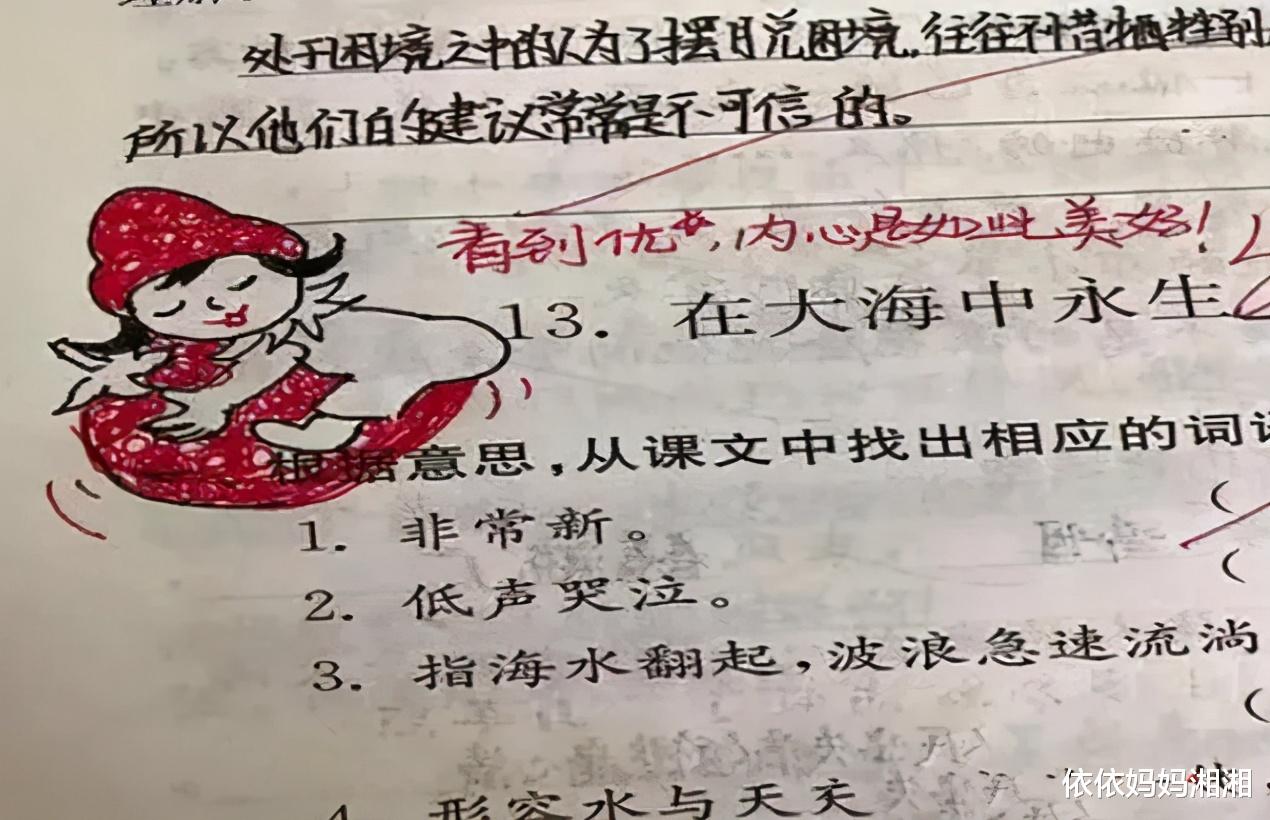 处于困境之中的人为了摆脱困境,往往不惜牺牲别
所以他们的建议常常是不可信的。
看到优*,内心是如此美好!
13. 在大海中永生
根据意思,从课文中找出相应的词语
(
1. 非常新。
(
2. 低声哭泣。
3. 指海水翻起,波浪急速流淌
(
4. 形容水与天交
依依妈妈湘湘